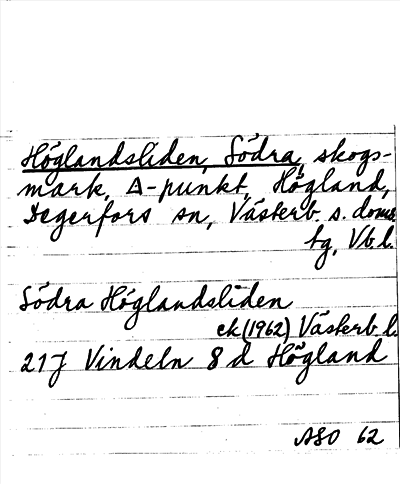 Höglandsliden, Södra, skogs-
mark, Δ-punkt, Högland,
Degerfors sn, Västerb. s. doms.
tg, Vb.l.
Södra Höglandsliden
ek (1962) Västerb.l.
21J Vindeln 8d Högland
ASO 62